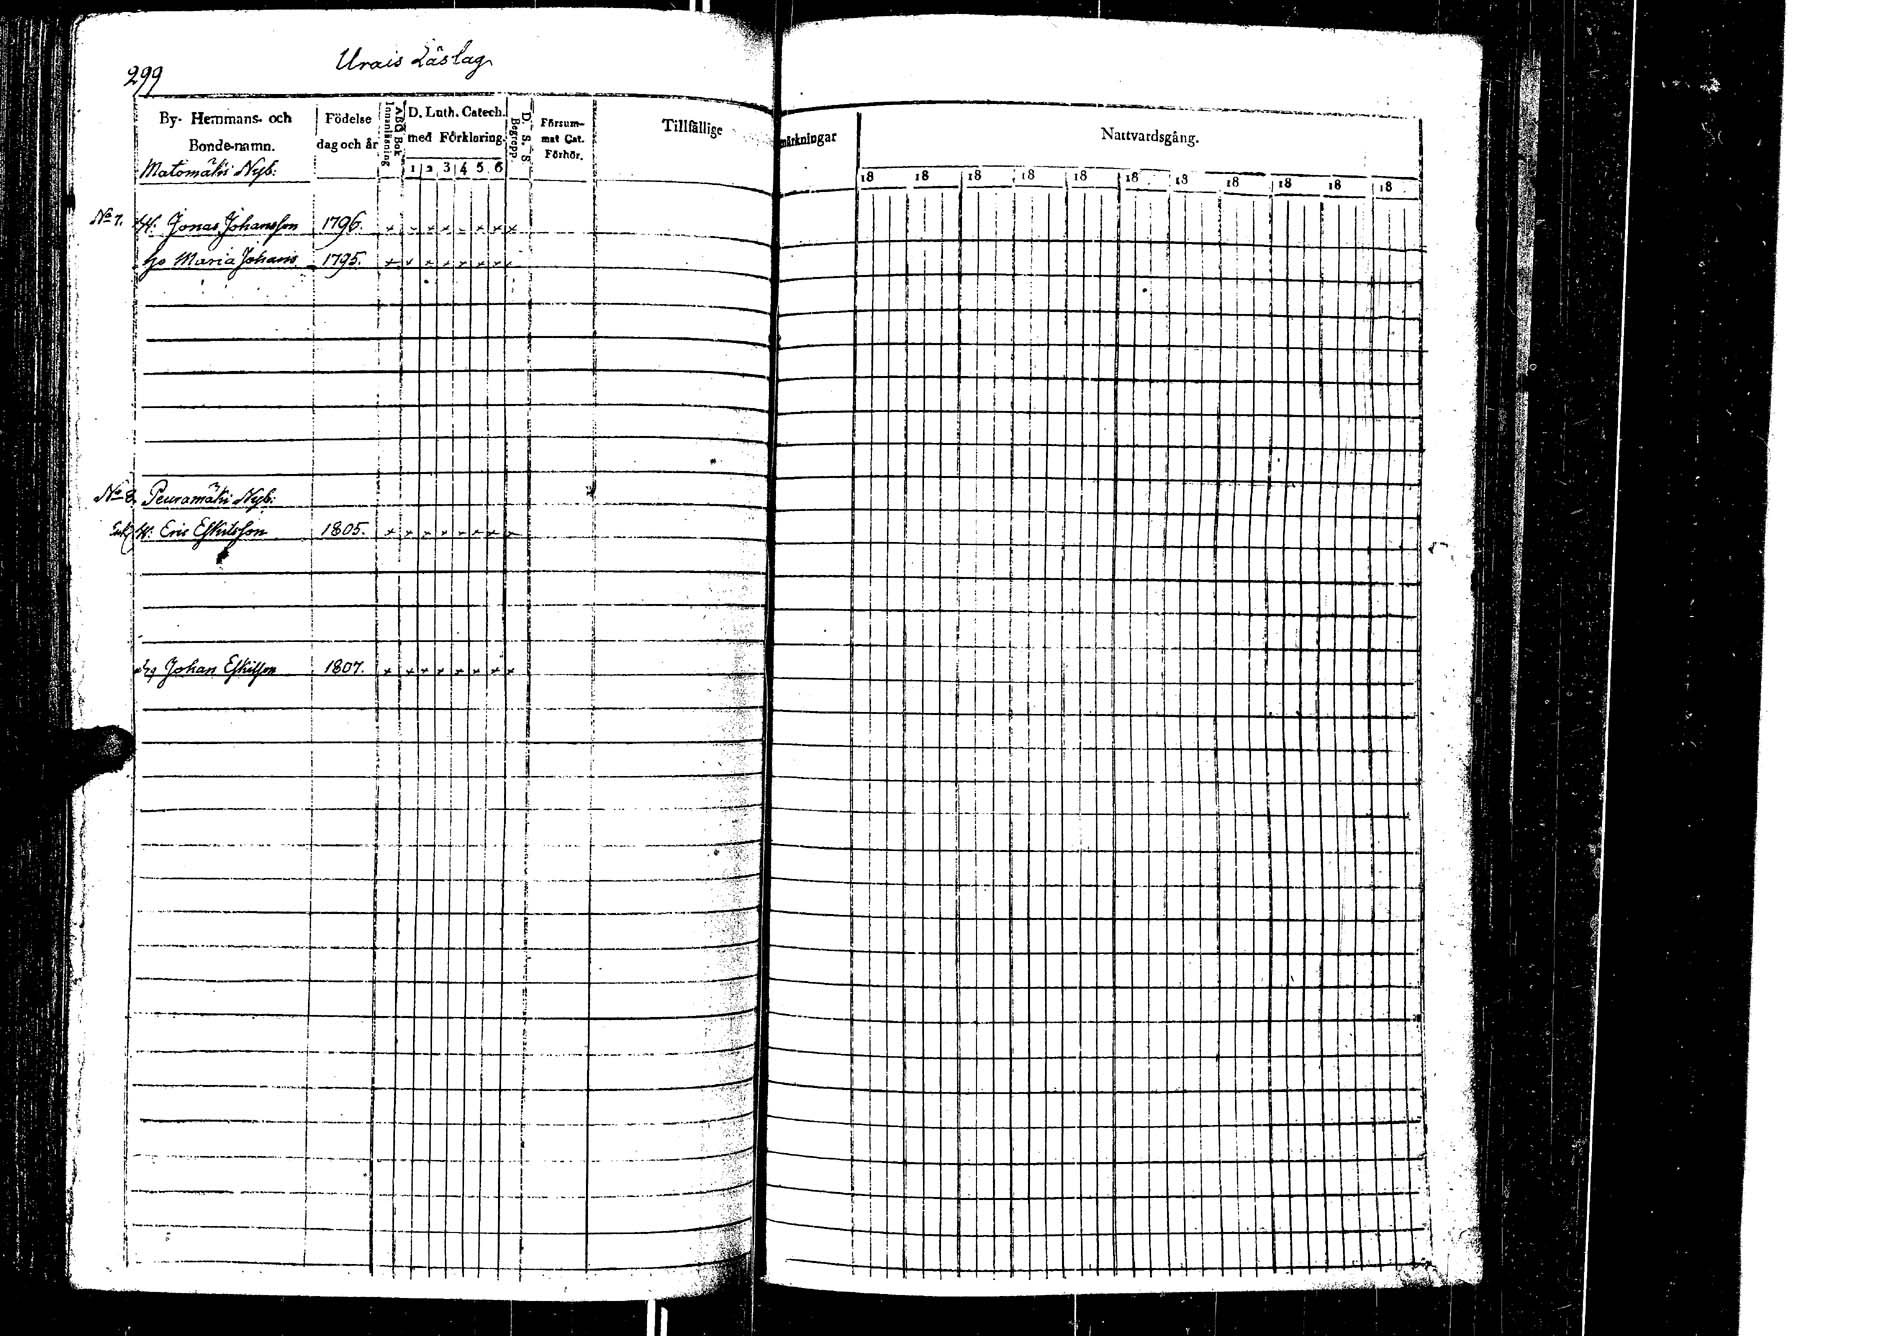 299
Urais Läslag
By- Hemmans- och
Bonde-namn.
Födelse
dag och år
Innanläsning
ABC Bok
D. Luth. Catech.
med Förkloring.
1 2 3 4 5 6
Begrepp.
D. S. S.
Försum-
mat Cat.
Förhör.
Tillfällige
märkningar
Nattvardsgång.
18 18 18 18 18 18 18 18 18 18 18
Matomäki Nyb:
No 7. H: Jonas Johansson 1796. x x x x x x x x
Hu Maria Johans 1795. x x x x x x x x
No 8. Peuramäki Nyb:
H: Eric Eskilsson 1805. x x x x x x x x
Johan Eskilsson 1807. x x x x x x x x